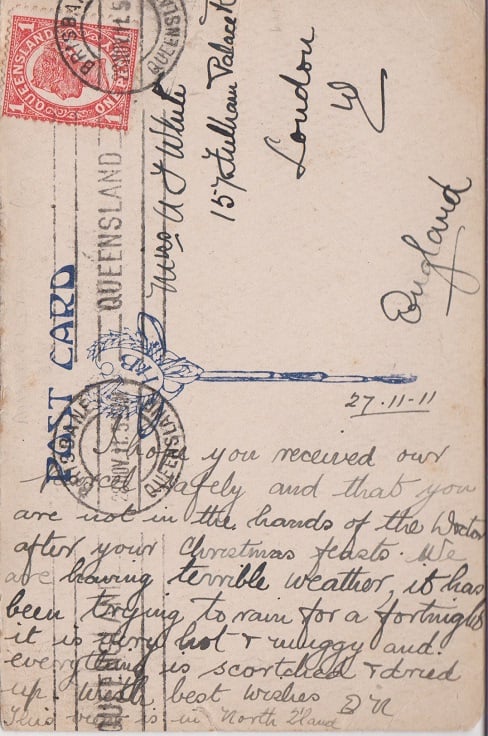 QUEENSLAND
ONE PENNY
1 1
BRISBANE
QUEENSLAND
QUEENSLAND
POST CARD
Mrs A J White
157 Fulham Palace R
London
W
England
BRISBANE
NOV 11
QUEENSLAND
27.11-11
I hope you received our
parcel safely and that you
are not in the hands of the Doctor
after your Christmas feasts. We
are having terrible weather, it has
been trying to rain for a fortnight
it is very hot & muggy and
everything is scortched & dried
up. With best wishes
This view is in North Q'land